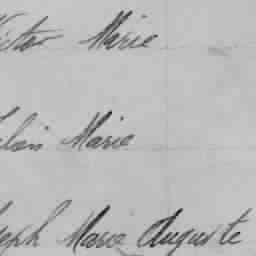 Victor Marie
Marie
Joseph Marie Auguste